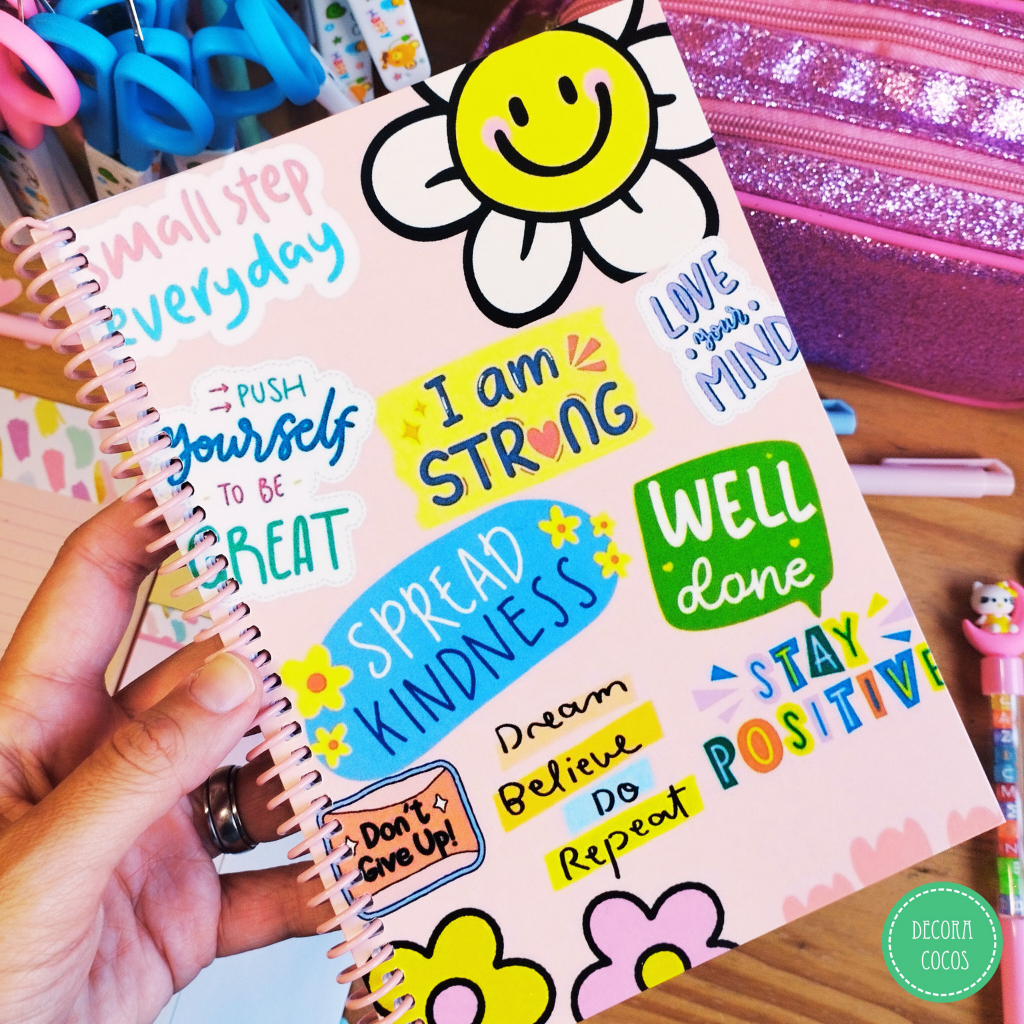 small step
everyday
LOVE
your
MIND
PUSH
yourself
TO BE
GREAT
I am
STRONG
WELL
done
SPREAD
KINDNESS
STAY
POSITIVE
Dream
Believe
DO
Repeat
Don't
Give Up!
DECORA
COCOS